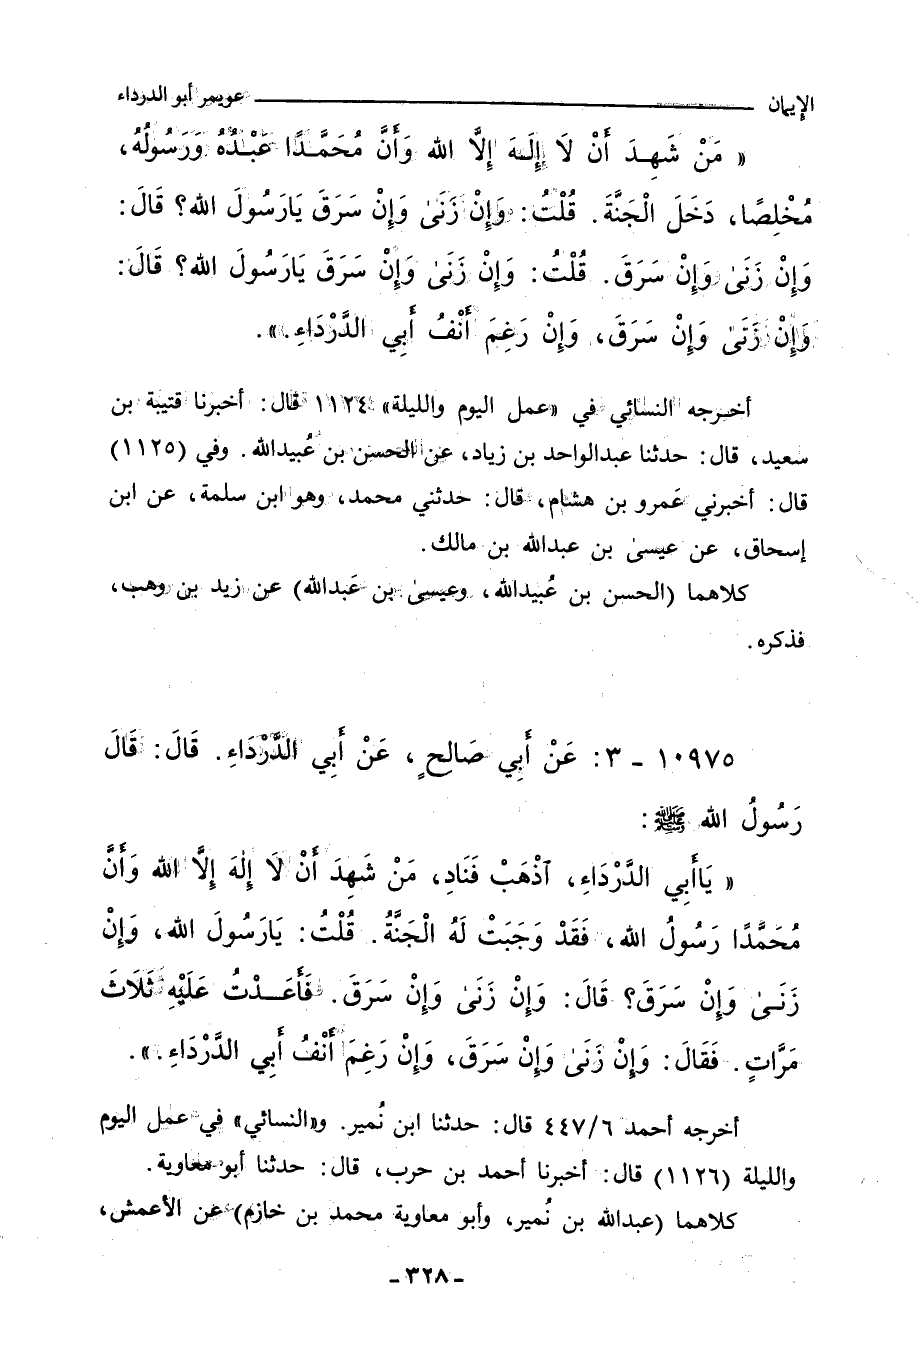 الإيمان ــــــــ عويمر أبو الدرداء
« مَنْ شَهِدَ أَنْ لَا إِلَهَ إِلَّا الله وَأَنَّ مُحَمَّدًا عَبْدُهُ وَرَسُولُهُ،
مُخْلِصًا، دَخَلَ الْجَنَّةَ. قُلْتُ: وَإِنْ زَنَىٰ وَإِنْ سَرَقَ يَارَسُولَ الله؟ قَالَ:
وَإِنْ زَنَىٰ وَإِنْ سَرَقَ. قُلْتُ: وَإِنْ زَنَىٰ وَإِنْ سَرَقَ يَارَسُولَ الله؟ قَالَ:
وَإِنْ زَنَىٰ وَإِنْ سَرَقَ، وَإِنْ رَغِمَ أَنْفُ أَبِي الدَّرْدَاءِ.».
أخرجه النسائي في «عمل اليوم والليلة» ١١٢٤ قال: أخبرنا قتيبة بن
سعيد، قال: حدثنا عبدالواحد بن زياد، عن الحسن بن عُبيدالله. وفي (١١٢٥)
قال: أخبرني عَمرو بن هشام، قال: حدثني محمد، وهو ابن سلمة، عن ابن
إسحاق، عن عيسىٰ بن عبدالله بن مالك.
كلاهما (الحسن بن عُبيدالله، وعيسىٰ بن عَبدالله) عن زيد بن وهب،
فذكره.
١٠٩٧٥ - ٣: عَنْ أَبِي صَالِحٍ، عَنْ أَبِي الدَّرْدَاءِ. قَالَ: قَالَ
رَسُولُ الله ﷺ:
« يَاأَبِي الدَّرْدَاءِ، آذْهَبْ فَنَادِ، مَنْ شَهِدَ أَنْ لَا إِلٰهَ إِلَّا الله وَأَنَّ
مُحَمَّدًا رَسُولُ الله، فَقَدْ وَجَبَتْ لَهُ الْجَنَّةُ. قُلْتُ: يَارَسُولَ الله، وَإِنْ
زَنَىٰ وَإِنْ سَرَقَ؟ قَالَ: وَإِنْ زَنَىٰ وَإِنْ سَرَقَ. فَأَعَدْتُ عَلَيْهِ ثَلَاثَ
مَرَّاتٍ. فَقَالَ: وَإِنْ زَنَىٰ وَإِنْ سَرَقَ، وَإِنْ رَغِمَ أَنْفُ أَبِي الدَّرْدَاءِ.».
أخرجه أحمد ٤٤٧/٦ قال: حدثنا ابن نُمير. و«النسائي» في عمل اليوم
والليلة (١١٢٦) قال: أخبرنا أحمد بن حرب، قال: حدثنا أبو معاوية.
كلاهما (عبدالله بن نُمير، وأبو معاوية محمد بن خازم) عن الأعمش،
- ٣٢٨ -